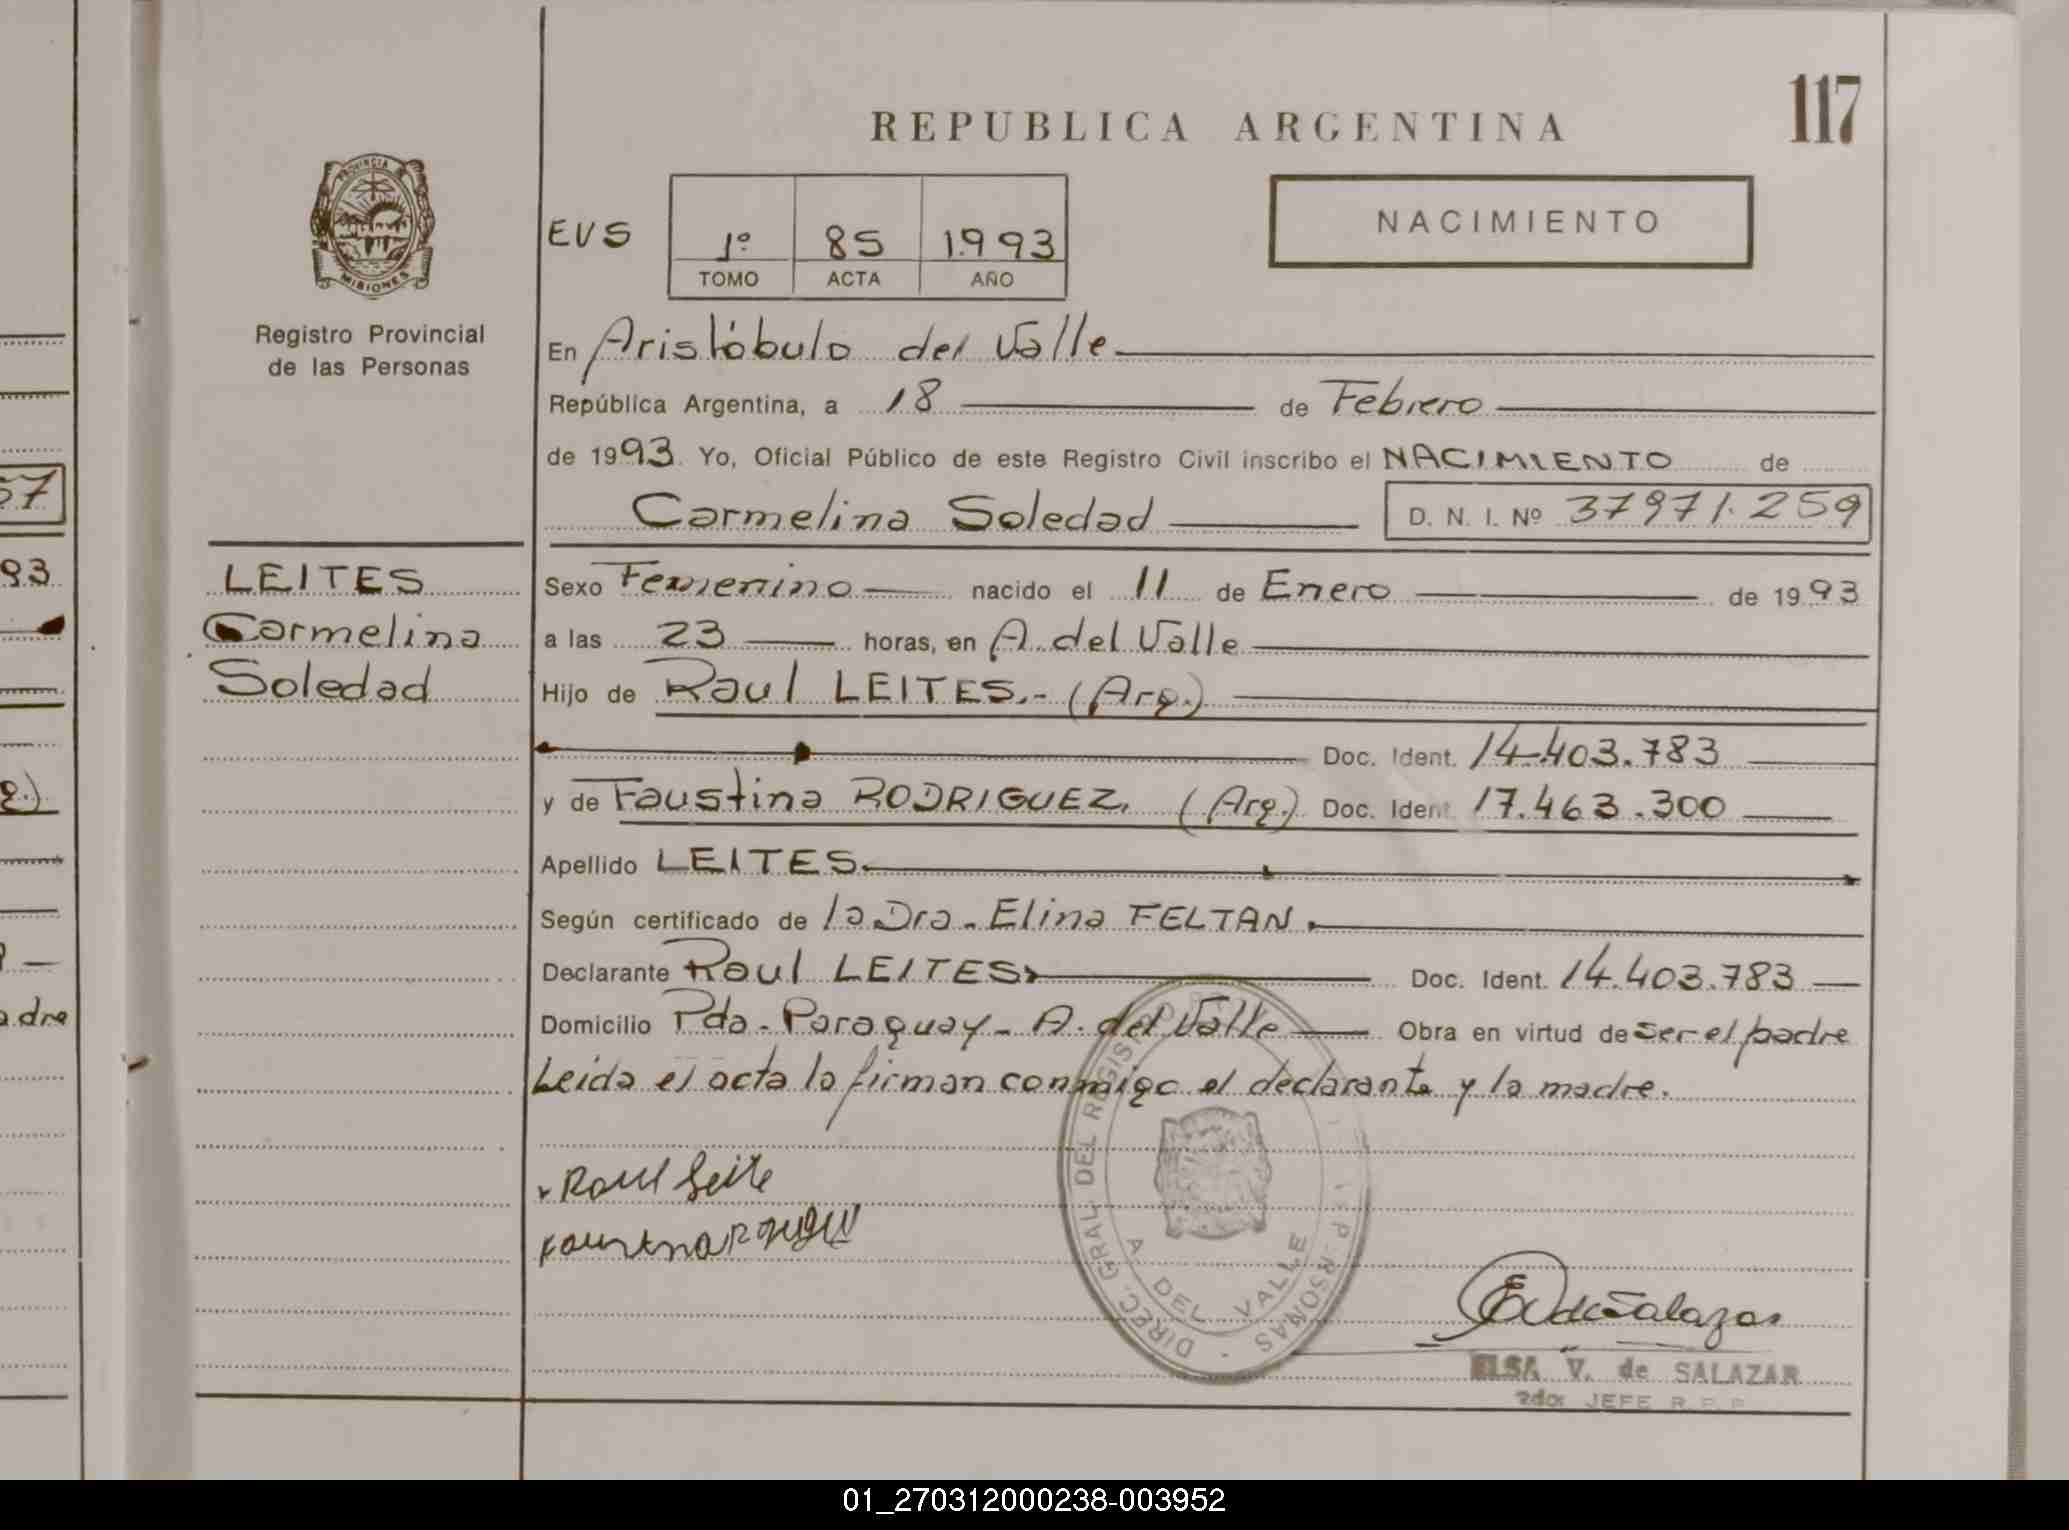 117
REPUBLICA ARGENTINA
PROVINCIA DE
MISIONES
Registro Provincial
de las Personas
EVS
1º 85 1.993
TOMO ACTA AÑO
NACIMIENTO
En Aristóbulo del Valle
República Argentina, a 18 de Febrero
de 1993. Yo, Oficial Público de este Registro Civil inscribo el NACIMIENTO de
Carmelina Soledad D. N. I. Nº 37971.259
LEITES
Carmelina
Soledad
Sexo Femenino nacido el 11 de Enero de 1993
a las 23 horas, en A. del Valle
Hijo de Raul LEITES.- (Arg.)
Doc. Ident. 14.403.783
y de Faustina RODRIGUEZ. (Arg.) Doc. Ident. 17.463.300
Apellido LEITES
Según certificado de la Dra. Elina FELTAN.
Declarante Raul LEITES Doc. Ident. 14.403.783
Domicilio Pda. Paraguay - A. del Valle Obra en virtud de ser el padre
Leida el acta la firman conmigo el declarante y la madre.
Raul Leite
DIREC. GRAL. DEL REGISTRO
PERSONAS
A DEL VALLE
EV de Salazar
ELSA V. de SALAZAR
2do. JEFE R.P.P.
57
93
g.)
adre
01_270312000238-003952